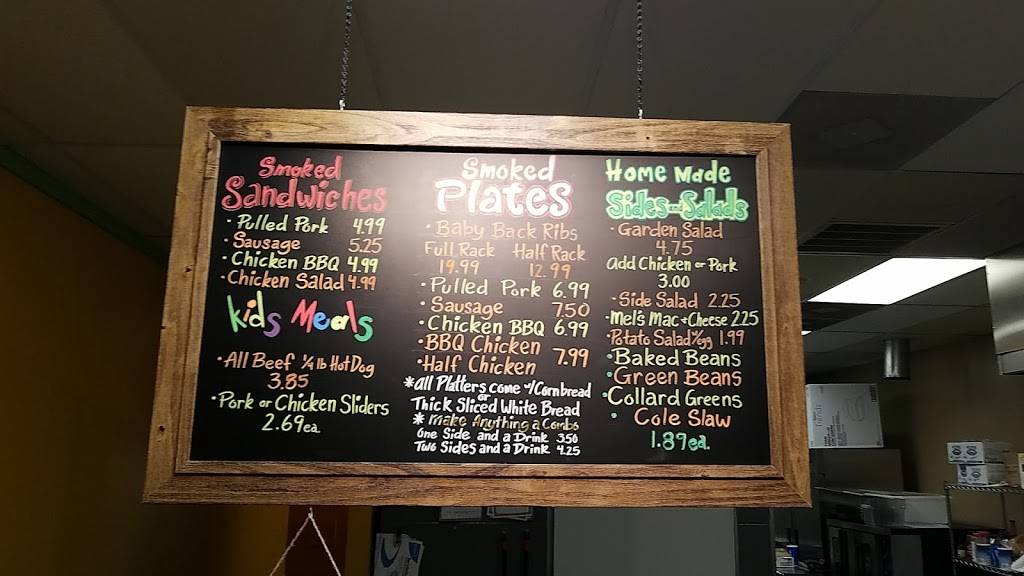 Smoked
Sandwiches
· Pulled Pork 4.99
· Sausage 5.25
· Chicken BBQ 4.99
· Chicken Salad 4.99
Kids Meals
· All Beef 1/4 lb Hot Dog
3.85
· Pork or Chicken Sliders
2.69 ea.
Smoked
Plates
· Baby Back Ribs
Full Rack Half Rack
19.99 12.99
· Pulled Pork 6.99
· Sausage 7.50
· Chicken BBQ 6.99
· BBQ Chicken
· Half Chicken 7.99
* All Platters come w/ Cornbread
or
Thick Sliced White Bread
* Make Anything a Combo
One Side and a Drink 3.50
Two Sides and a Drink 4.25
Home Made
Sides and Salads
· Garden Salad
4.75
Add Chicken or Pork
3.00
· Side Salad 2.25
· Mel's Mac + Cheese 2.25
· Potato Salad w/egg 1.99
· Baked Beans
· Green Beans
· Collard Greens
· Cole Slaw
1.89 ea.